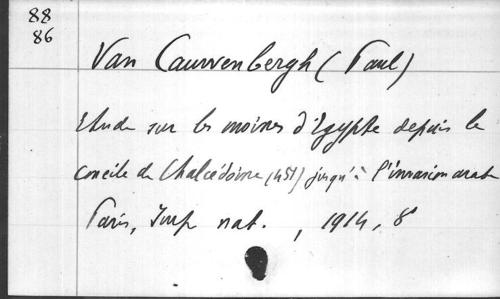 88
86
Van Cauwenbergh (Paul)
Etude sur les moines d'Egypte depuis le
concile de Chalcédoine (451) jusqu'à l'invasion arabe
Paris, Imp nat. , 1914, 8°